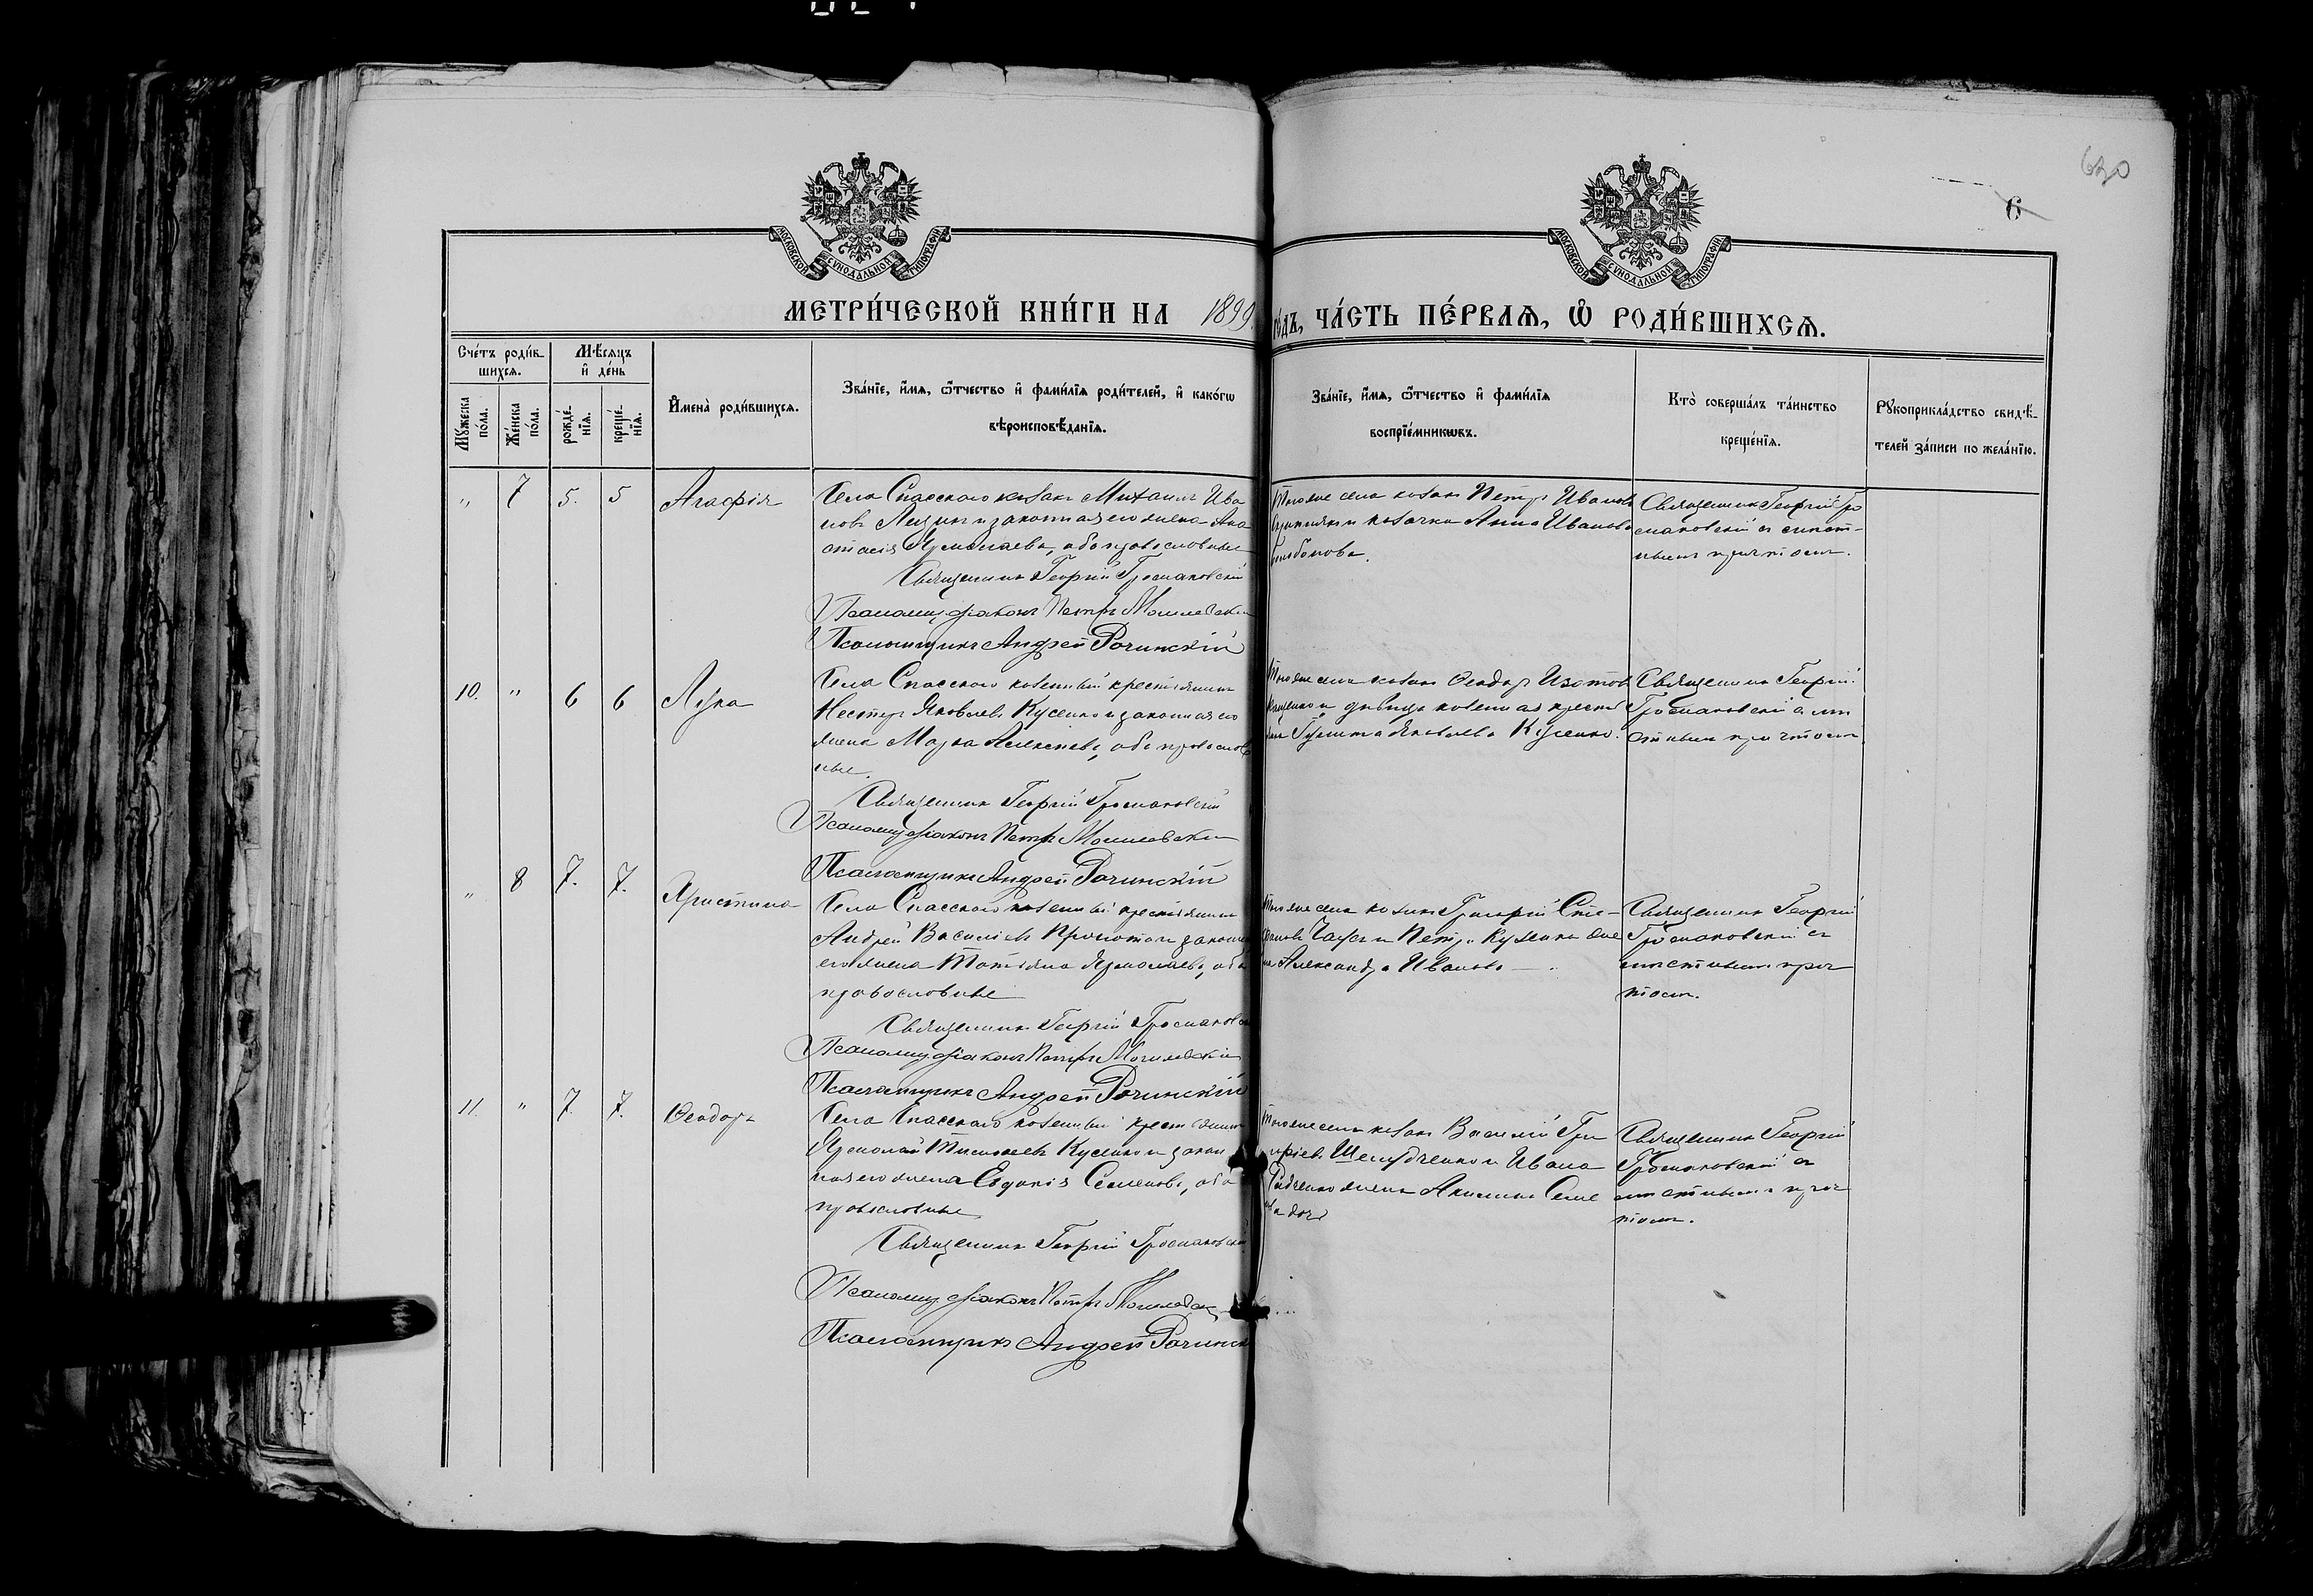 630
6
МОСКОВСКОЙ СѴНОДАЛЬНОЙ ТИПОГРАФІИ
МОСКОВСКОЙ СѴНОДАЛЬНОЙ ТИПОГРАФІИ
МЕТРИ́ЧЕСКОЙ КНИ́ГИ НА 1899
го́дъ, ЧА́СТЬ ПЕ́РВАѦ, Ѡ҆ РОДИ́ВШИХСѦ.
Сче́тъ роди́в-
шихсѧ.
Мѣ́сѧцъ
и҆ де́нь
Мꙋ́жеска
по́ла.
Же́нска
по́ла.
рожде́-
нїѧ.
креще́-
нїѧ.
И҆мена̀ роди́вшихсѧ.
Зва́нїе, и҆́мѧ, ѻ҆́тчество и҆ фами́лїѧ роди́телей, и҆ како́гѡ
вѣроисповѣ́данїѧ.
Зва́нїе, и҆́мѧ, ѻ҆́тчество и҆ фами́лїѧ
воспрїе́мникѡвъ.
Кто̀ соверша́лъ та́инство
креще́нїѧ.
Рꙋкоприкла́дство свидѣ́-
телей за́писи по жела́нїю.
" 7 5. 5 Агафія
Села Спасскаго козакъ Михаилъ Ива
новъ и законная его жена Ана
стасія Ярмолаева, оба православные
Священникъ Георгій Громаковскій
Псаломщ. діаконъ Петръ Могилевскій
Псаломщикъ Андрей Рачинскій
Того же села козакъ Петръ Ивановъ
и козачка Анна Иванова
Священникъ Георгій Гро
маковскій съ
причтомъ.
10. " 6 6 Лука
Села Спасскаго козенный крестьянинъ
Несторъ Яковлевъ Кусенко и законная его
жена Марѳа Алексѣева, оба православ
ные.
Священникъ Георгій Громаковскій
Псаломщ. діаконъ Петръ Могилевскій
Псаломщикъ Андрей Рачинскій
Того же села козакъ Ѳеодоръ Изотовъ
и дѣвица козенная крестья
Яковлева Кусенко.
Священникъ Георгій
Громаковскій съ мѣ
стнымъ причтомъ.
" 8 7. 7. Христина
Села Спасскаго козенный крестьянинъ
Андрей Васильевъ и законная
его жена Татьяна Ярмолаева, оба
православные
Священникъ Георгій Громаковскій
Псаломщ. діаконъ Петръ Могилевскій
Псаломщикъ Андрей Рачинскій
Того же села козакъ Григорій Сте-
и Петра Кусенка же
на Александра Иванова
Священникъ Георгій
Громаковскій съ
мѣстнымъ прич
томъ.
11. " 7. 7. Ѳеодоръ
Села Спасскаго козенный крестьянинъ
Ярмолай Тимоѳеевъ Кусенко и закон
ная его жена Евдокія Семенова, оба
православные
Священникъ Георгій Громаковскій
Псаломщ. діаконъ Петръ Могилевскій
Псаломщикъ Андрей Рачинск
Того же села козакъ Василій Гри
горіевъ Шелудченко и Ивана
жена Акилина Семе
Священникъ Георгій
Громаковскій съ
мѣстнымъ прич
томъ.